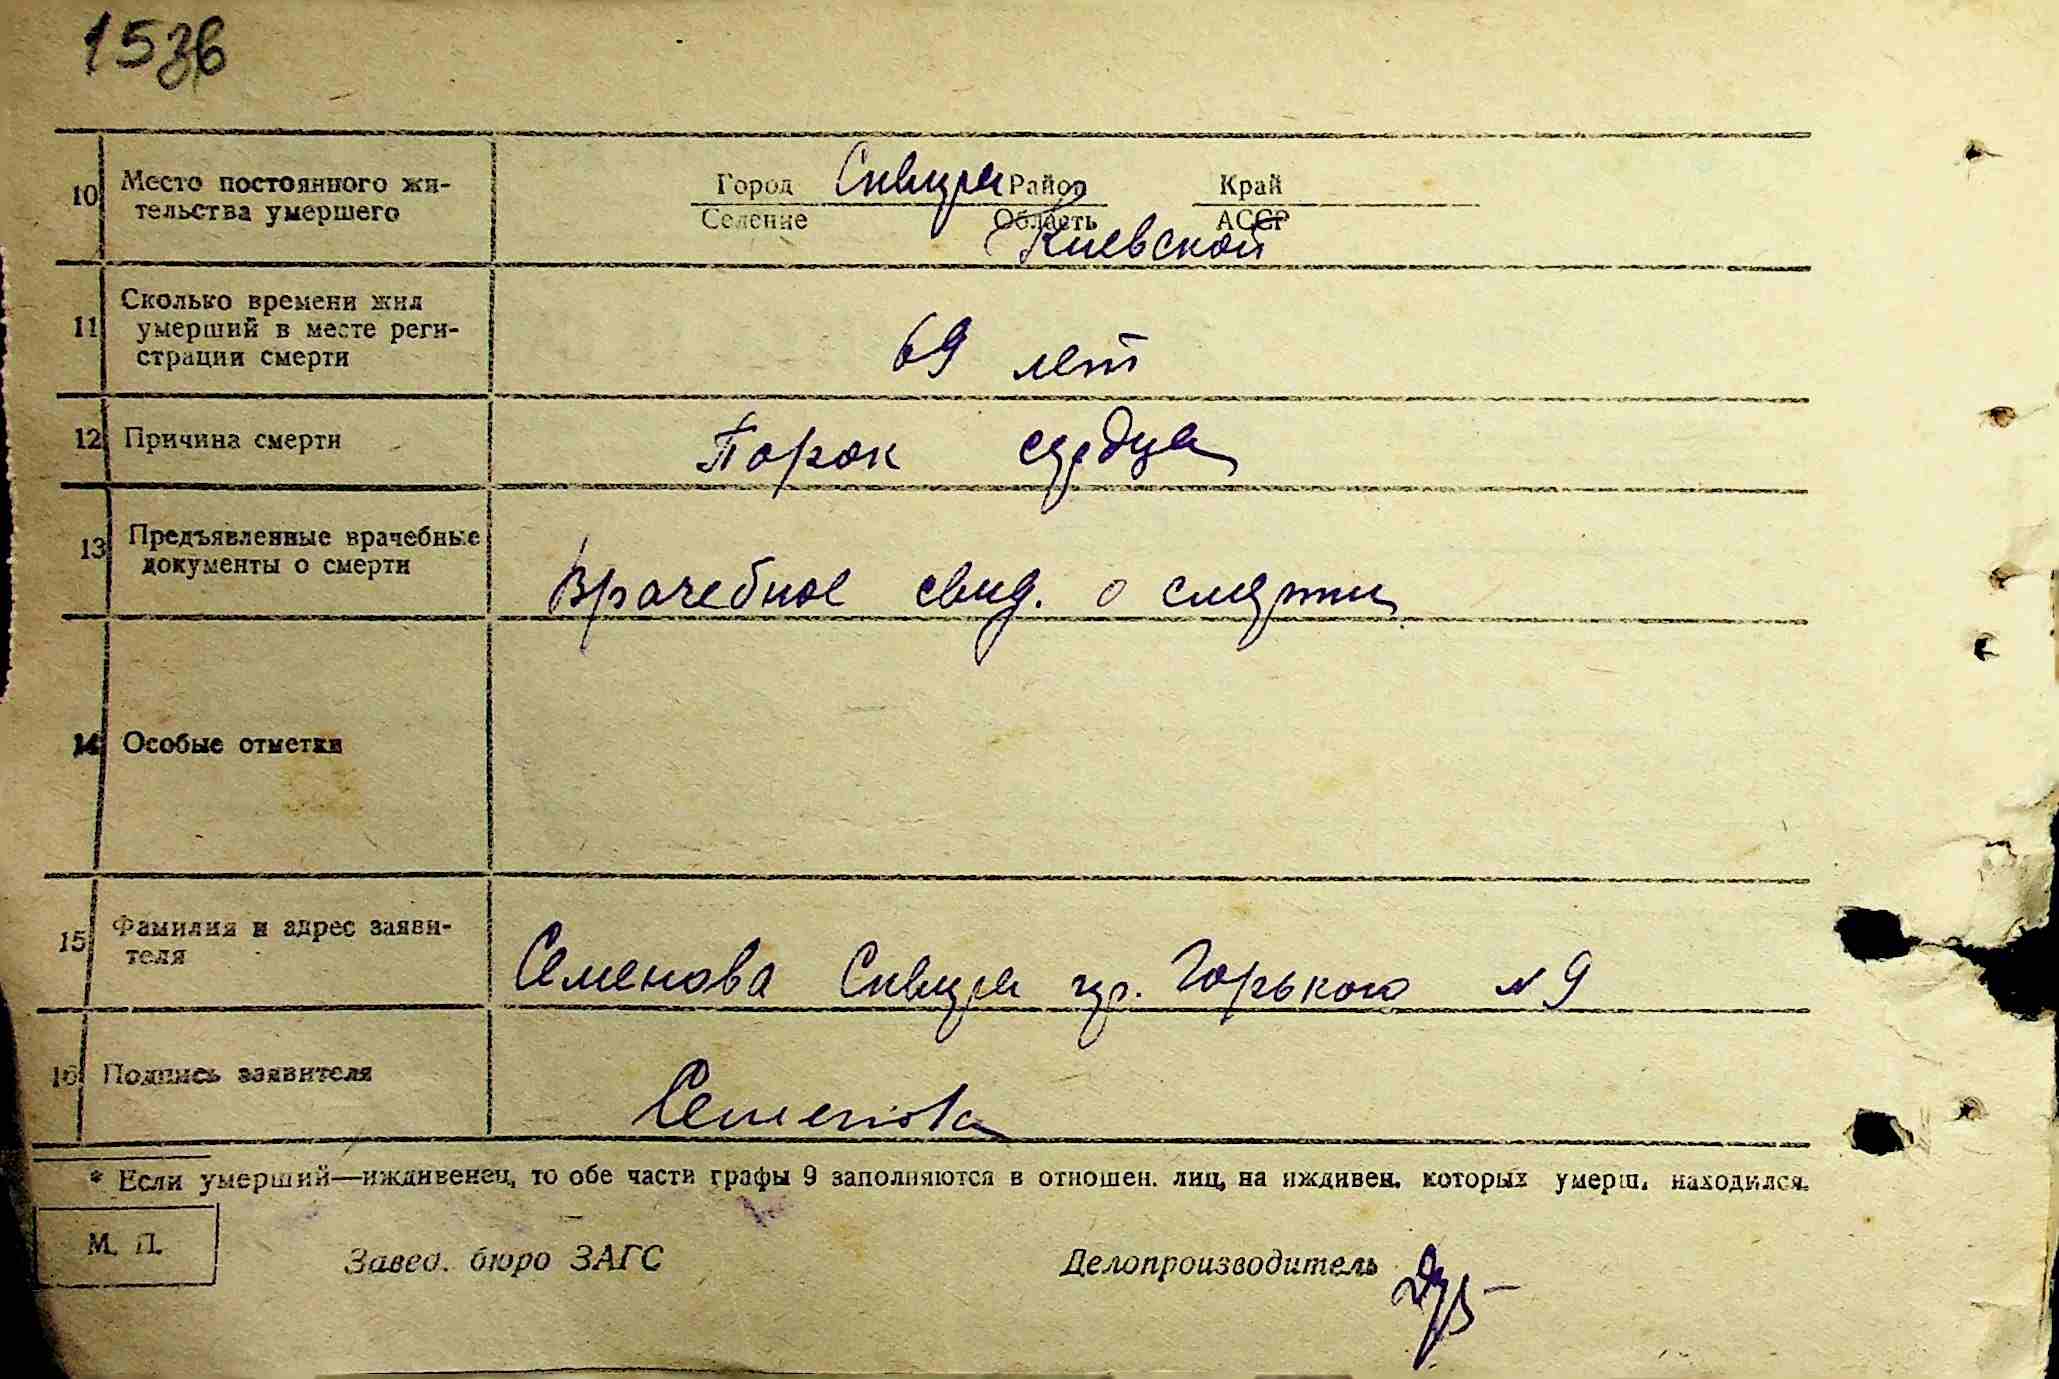 153в
10 Место постоянного жи-
тельства умершего
Город Сквира Район Край
Селение Область АССР
Киевской
11 Сколько времени жил
умерший в месте реги-
страции смерти
69 лет
12 Причина смерти Порок сердца
13 Предъявленные врачебные
документы о смерти
Врачебное свид. о смерти
14 Особые отметки
15 Фамилия и адрес заяви-
теля
Семенова Сквира ул. Горького №9
16 Подпись заявителя
Семенова
* Если умерший—иждивенец, то обе части графы 9 заполняются в отношен. лиц, на иждивен. которых умерш. находился.
М. П.
Завед. бюро ЗАГС Делопроизводитель